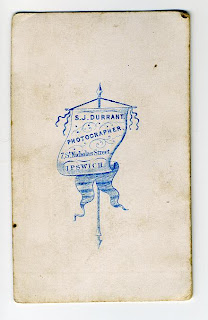 S.J. DURRANT,
PHOTOGRAPHER.
7, St Nicholas Street,
IPSWICH.